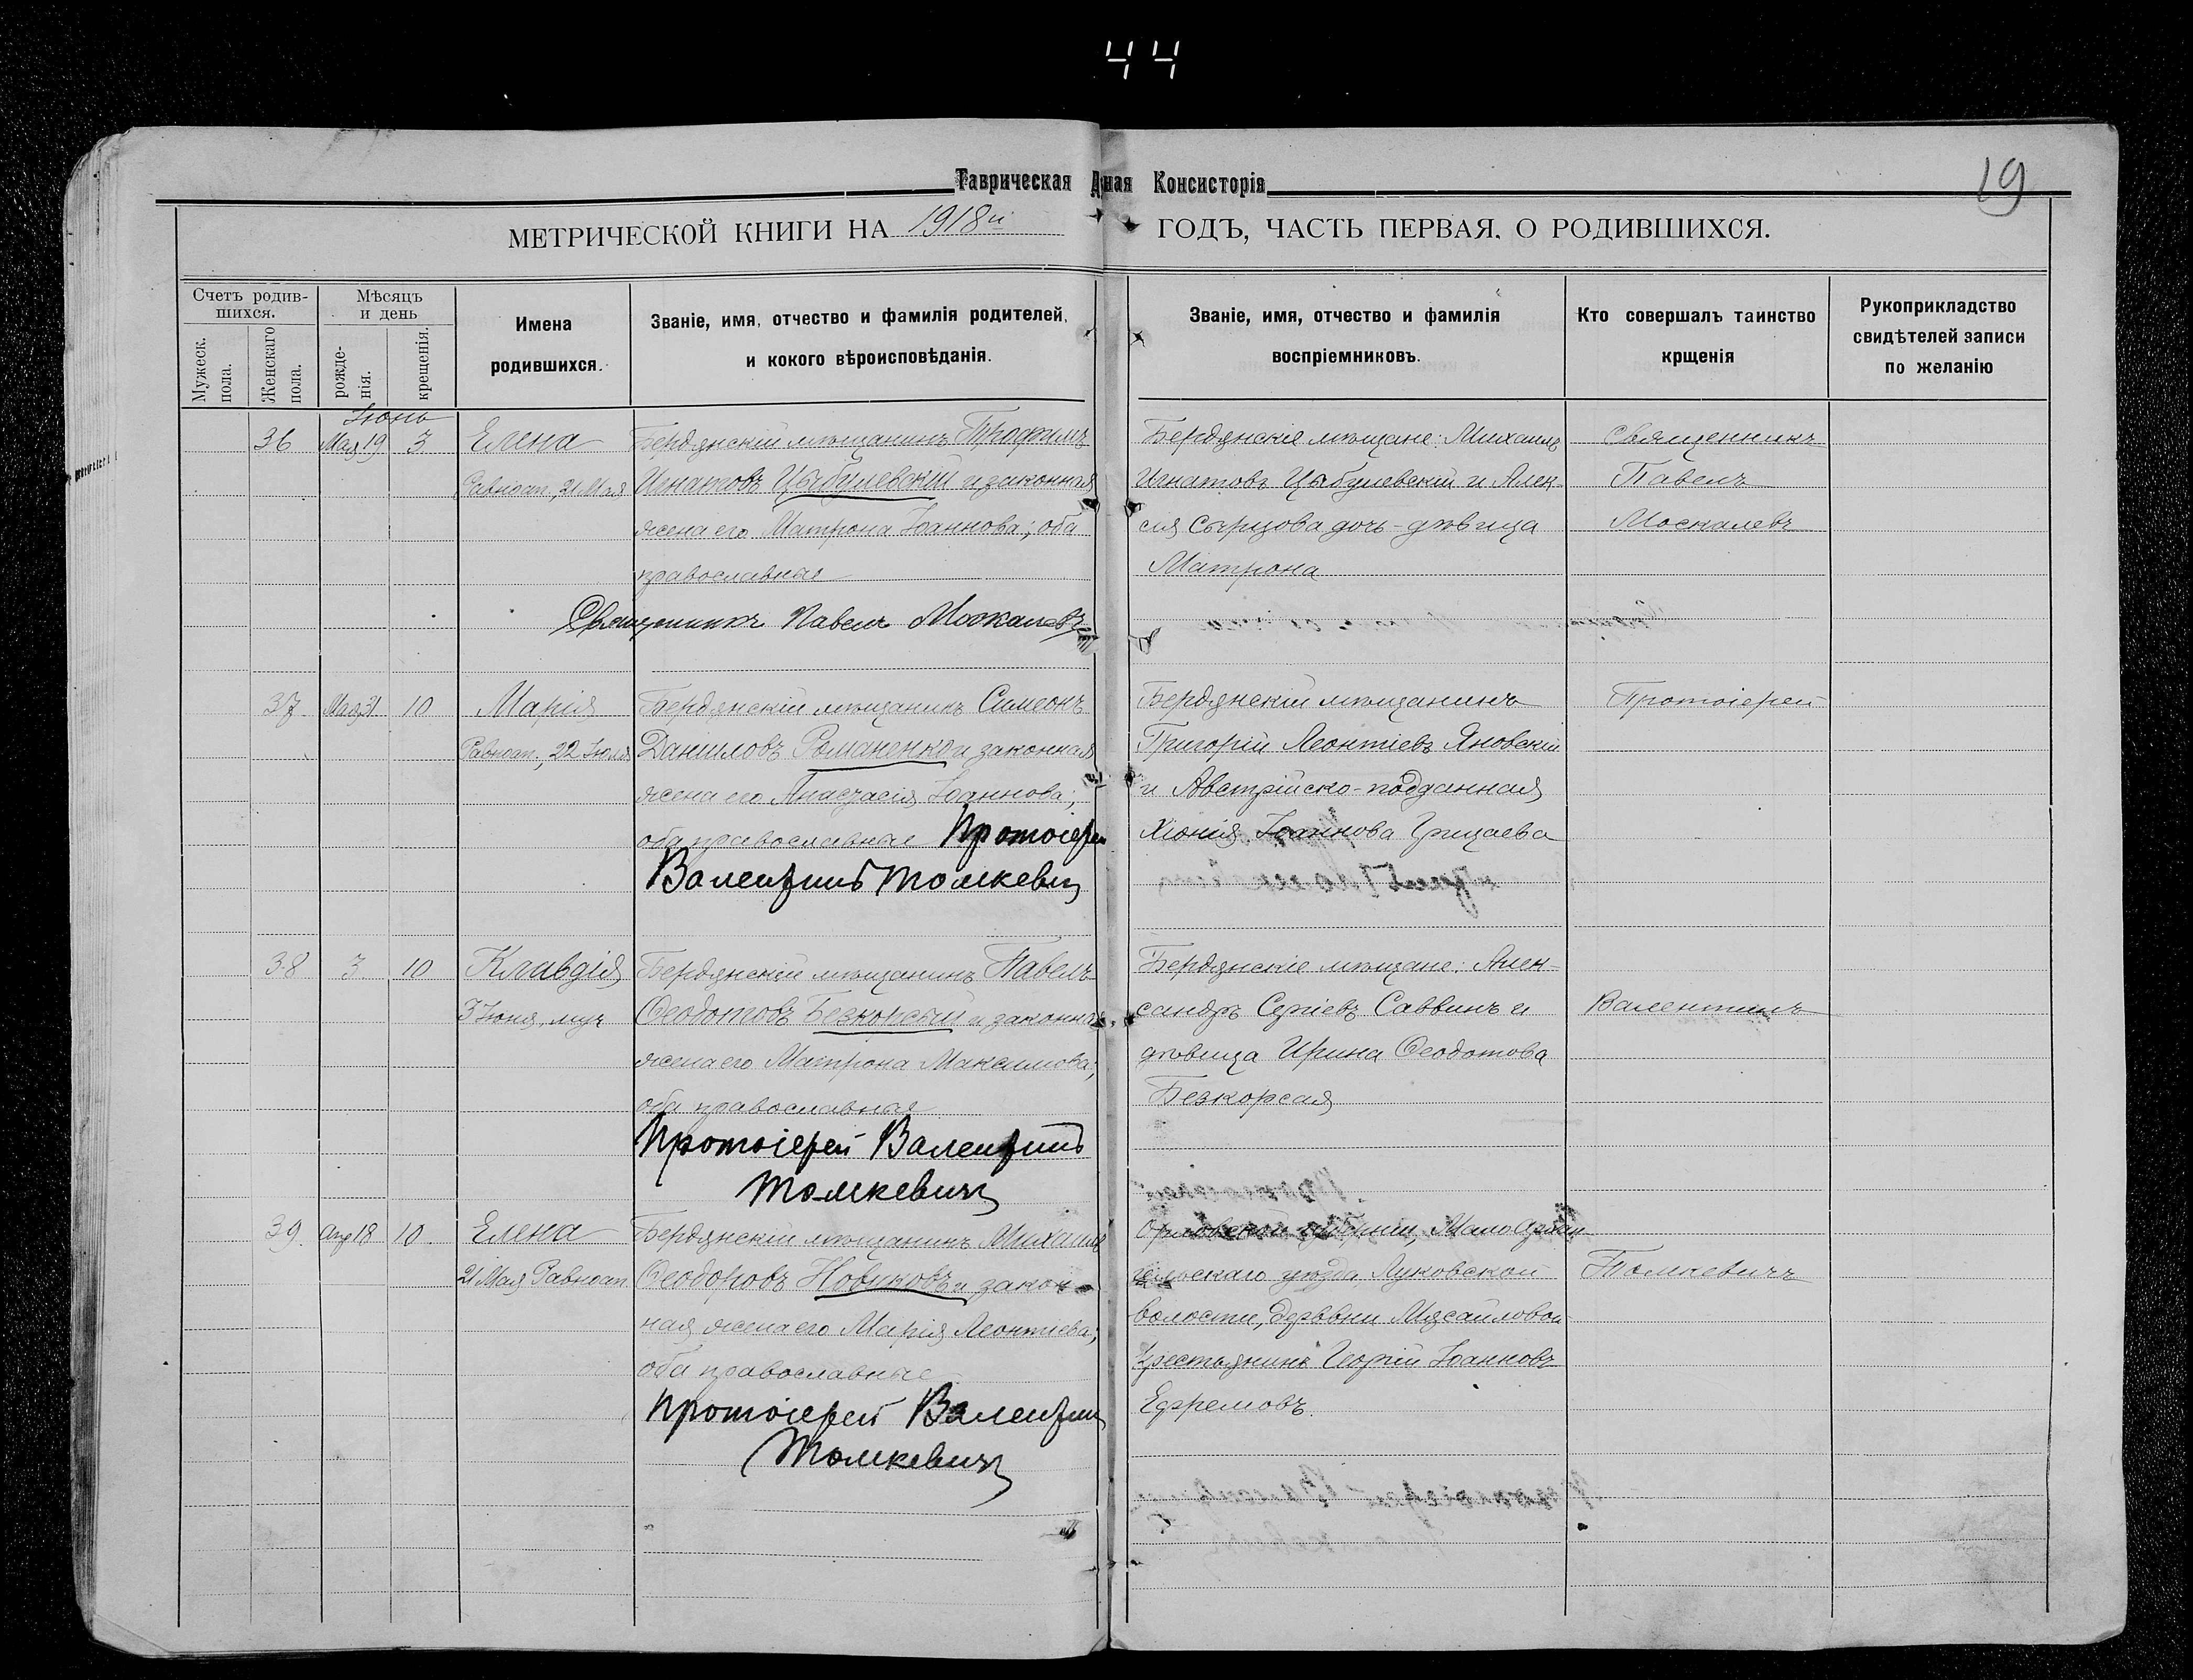 44
Таврическая Дная Консисторія
19
МЕТРИЧЕСКОЙ КНИГИ НА 1918й ГОДЪ, ЧАСТЬ ПЕРВАЯ, О РОДИВШИХСЯ.
Счетъ родив-
шихся.
Мужеск.
пола.
Женскаго
пола.
Мѣсяцъ
и день
рожде-
нія.
крещенія.
Имена
родившихся.
Званіе, имя, отчество и фамилія родителей,
и кокого вѣроисповѣданія.
Званіе, имя, отчество и фамилія
воспріемниковъ.
Кто совершалъ таинство
крщенія
Рукоприкладство
свидѣтелей записи
по желанію
Іюнь
36 Мая 19 3 Елена
Равноап., 21 Мая
Бердянскій мѣщанинъ Трофимъ
Игнатовъ Цыбулевскій и законная
жена его Матрона Іоаннова; оба
православные
Священникъ Павелъ Москалевъ
Бердянскіе мѣщане: Михаилъ
Игнатовъ Цыбулевскій и Алек-
сія Сырцова дочь-дѣвица
Матрона
Священникъ
Павелъ
Москалевъ
37 Мая 31 10 Марія
Равноап., 22 Іюля
Бердянскій мѣщанинъ Симеонъ
Даниловъ Романенко и законная
жена его Анастасія Іоаннова;
оба православные Протоіерей
Валентинъ Томкевич
Бердянскій мѣщанинъ
Григорій Леонтіевъ Яновскій
и Австрійско-подданная
Хіонія Іоаннова Грицаева
Протоіерей
38 3 10 Клавдія
3 Іюня, муч
Бердянскій мѣщанинъ Павелъ
Ѳеодотовъ Безкорсый и законная
жена его Матрона Максимова;
оба православные
Протоіерей Валентинъ
Томкевичъ
Бердянскіе мѣщане: Алек-
сандръ Сергіевъ Саввинъ и
дѣвица Ирина Ѳеодотова
Безкорсая
Валентинъ
39 Апр 18 10 Елена
21 Мая Равноап.
Бердянскій мѣщанинъ Михаилъ
Ѳеодоровъ Новиковъ и закон-
ная жена его Марія Леонтіева;
оба православные
Протоіерей Валентин
Томкевичъ
Орловской губерніи, Мало Архан-
гельскаго уѣзда, Луковской
волости, деревни
крестьянинъ Георгій Іоанновъ
Ефремовъ.
Томкевичъ